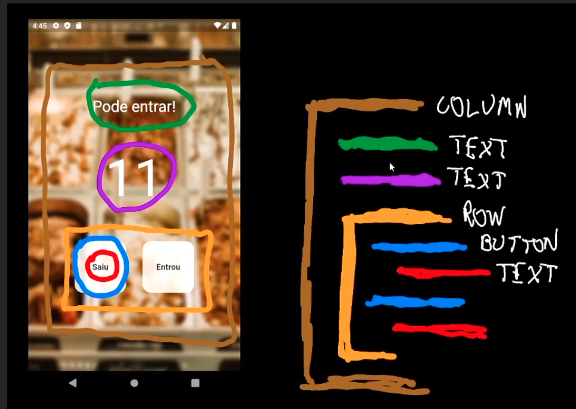 4:45
Pode entrar!
11
Saiu
Entrou
COLUMN
TEXT
TEXT
ROW
BUTTON
TEXT